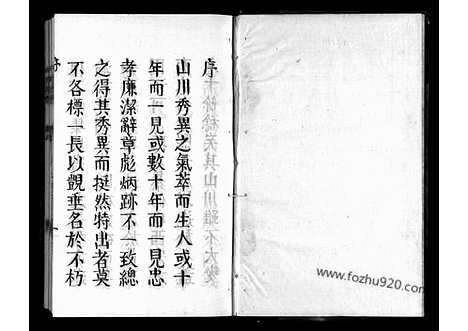 序
山川秀異之氣萃而生人或十
年而一見或數十年而一見忠
孝廉潔辭章彪炳跡不一致總
之得其秀異而挺然特出者莫
不各標一長以覬垂名於不朽
www.fozhu920.com